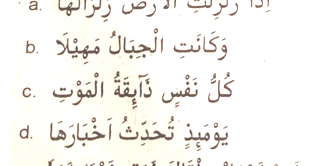 a. اِذَا زُلْزِلَتِ الْاَرْضُ زِلْزَالَهَا
b. وَكَانَتِ الْجِبَالُ مَهِيْلًا
c. كُلُّ نَفْسٍ ذَآئِقَةُ الْمَوْتِ
d. يَوْمَئِذٍ تُحَدِّثُ اَخْبَارَهَا